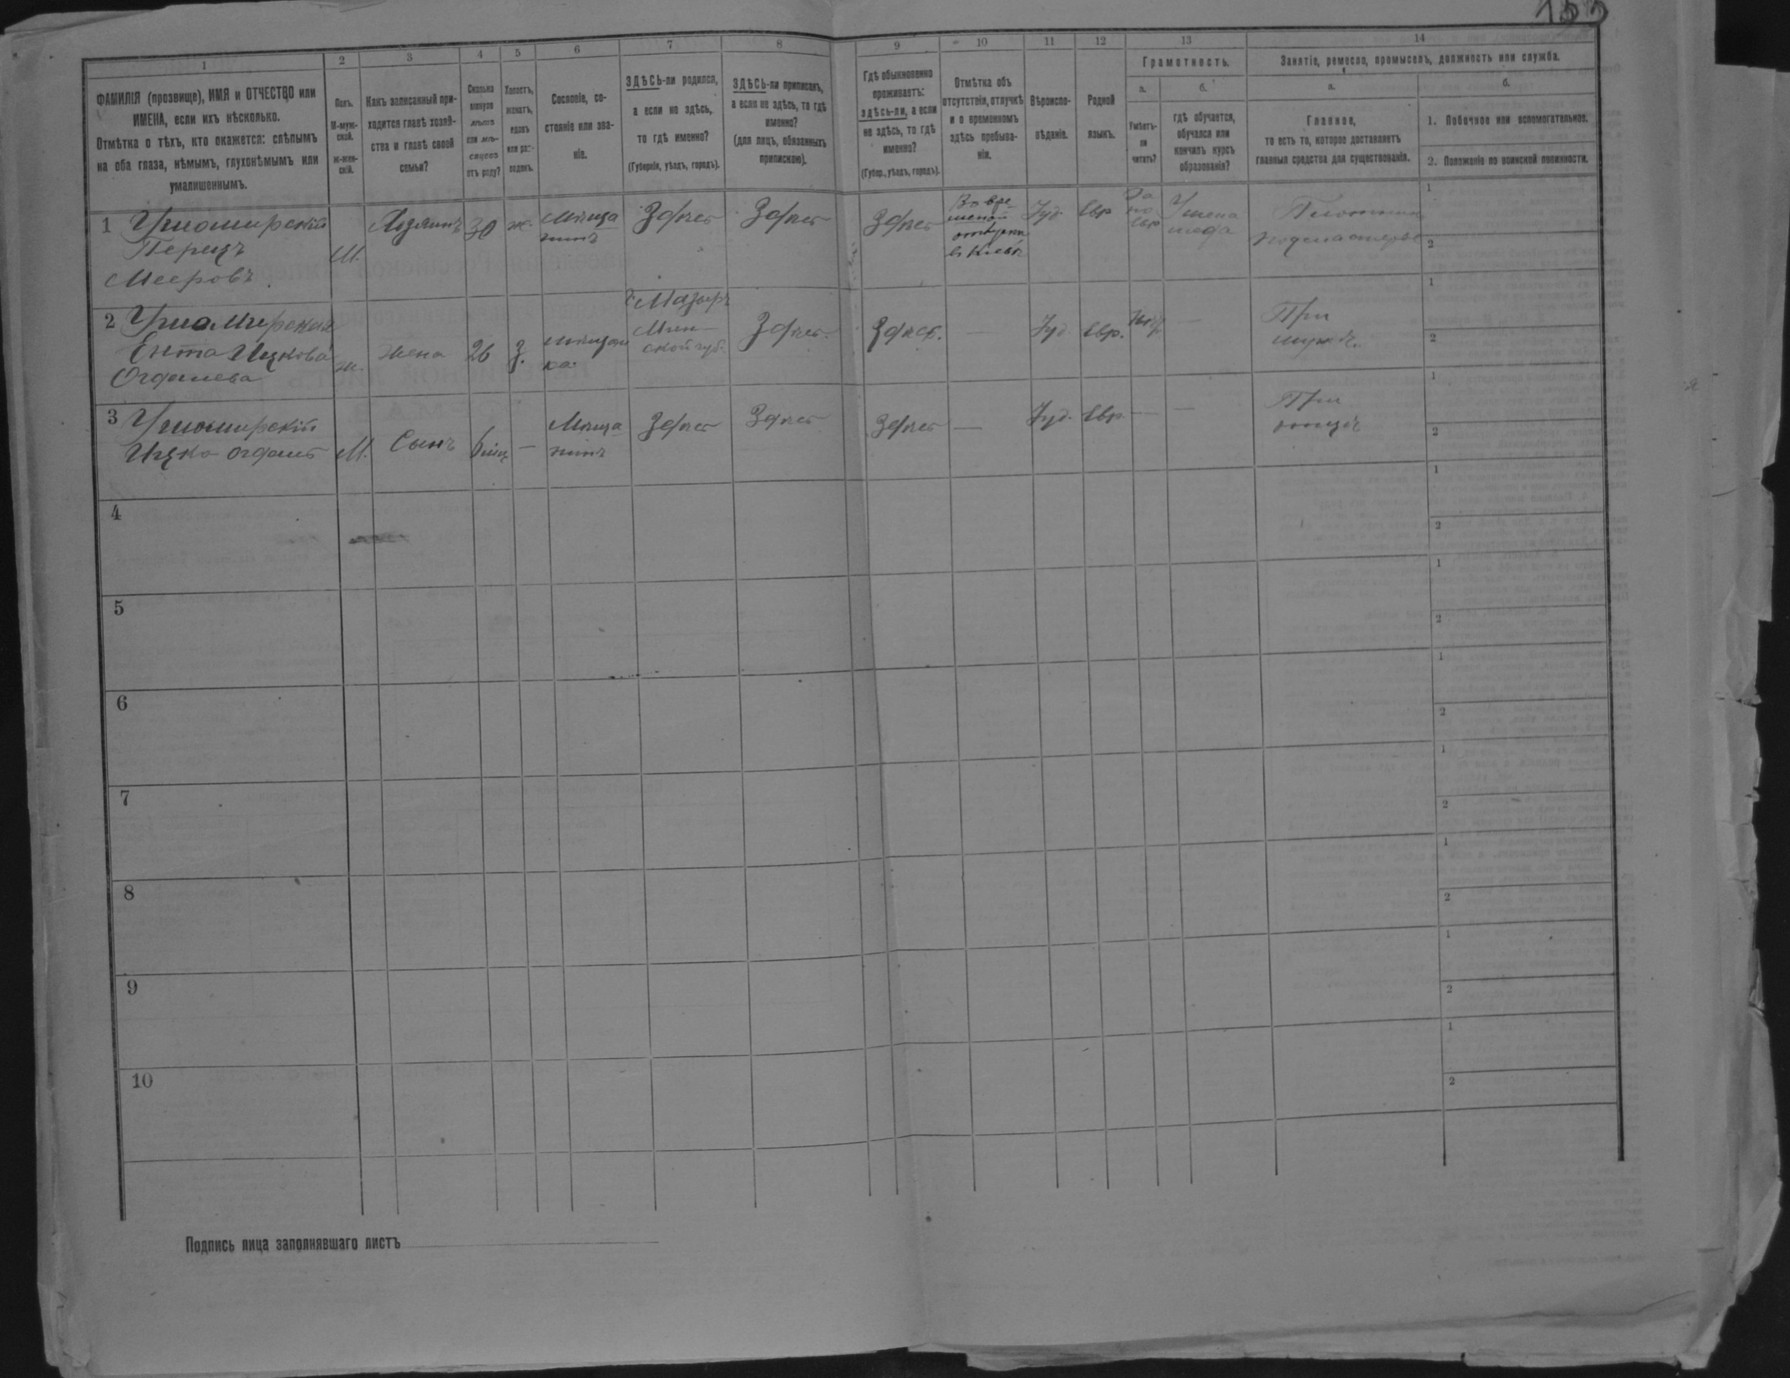 155
1 2 3 4 5 6 7 8 9 10 11 12 13 14
ФАМИЛІЯ (прозвище), ИМЯ и ОТЧЕСТВО или
ИМЕНА, если ихъ нѣсколько.
Отмѣтка о тѣхъ, кто окажется: слѣпымъ
на оба глаза, нѣмымъ, глухонѣмымъ или
умалишеннымъ.
Полъ.
М-муж-
ской.
ж-жен-
скій.
Какъ записанный при-
ходится главѣ хозяй-
ства и главѣ своей
семьи?
Сколько
минуло
лѣтъ
или мѣ-
сяцевъ
отъ роду?
Холостъ,
женатъ,
вдовъ
или раз-
веденъ.
Сословіе, со-
стояніе или зва-
ніе.
ЗДѢСЬ-ли родился,
а если не здѣсь,
то гдѣ именно?
(Губернія, уѣздъ, городъ).
ЗДѢСЬ-ли приписанъ,
а если не здѣсь, то гдѣ
именно?
(для лицъ, обязанныхъ
припискою).
Гдѣ обыкновенно
проживаетъ:
здѣсь-ли, а если
не здѣсь, то гдѣ
именно?
(Губер., уѣздъ, городъ).
Отмѣтка объ
отсутствіи, отлучкѣ
и о временномъ
здѣсь пребыва-
ніи.
Вѣроиспо-
вѣданіе.
Родной
языкъ.
Грамотность.
а.
Умѣетъ-
ли
читать?
б.
гдѣ обучается,
обучался или
кончилъ курсъ
образованія?
Занятіе, ремесло, промыселъ, должность или служба.
а.
Главное,
то есть то, которое доставляетъ
главныя средства для существованія.
б.
1. Побочное или вспомогательное.
2. Положеніе по воинской повинности.
1 Ушомирскій
Перецъ
Мееровъ
М.
Хозяинъ
30
ж.
Мѣща
нинъ
Здѣсь
Здѣсь
Здѣсь
Во вре
менной
отлучкѣ
въ Кіевѣ
Іуд
Евр
1
2
2 Ушомирская
Ента Ицкова
ж.
Жена
26
З.
мѣщан
ка
Мозырь
Мин
ской губ.
Здѣсь
Здѣсь.
—
Іуд
Евр.
—
При
мужѣ.
1
2
3 Ушомирскій
Ицко
М.
Сынъ
6 мѣц
—
Мѣща
нинъ
Здѣсь
Здѣсь
Здѣсь
—
Іуд.
Евр
—
—
При
отцѣ
1
2
4
1
2
5
1
2
6
1
2
7
1
2
8
1
2
9
1
2
10
1
2
Подпись лица заполнявшаго листъ